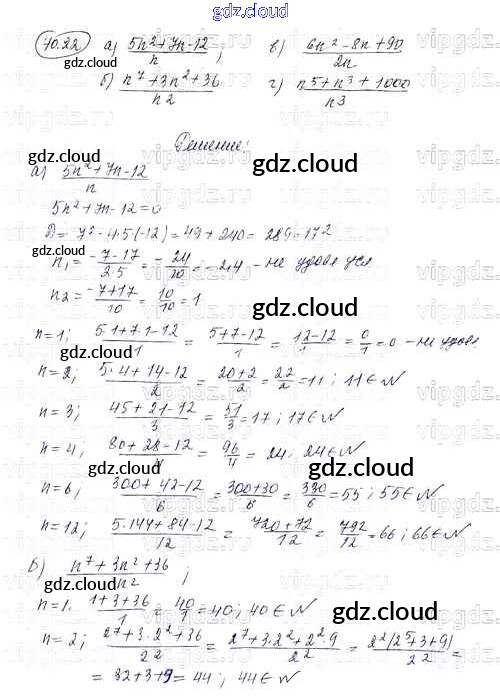 gdz.cloud
10.22. а) (5n²+7n-12)/n ; в) (6n²-8n+90)/2n
б) (n⁷+3n²+36)/n2 г) (n⁵+n³+1000)/n3
Решение:
а) (5n²+7n-12)/n
5n²+7n-12=0
D= 7²-4·5·(-12)=49+240=289=17²
n₁= (-7-17)/2·5 = -24/10 = -2,4 - не удовл усл
n2= (-7+17)/10 = 10/10 = 1
n=1; (5·1+7·1-12)/1 = (5+7-12)/1 = (12-12)/1 = 0/1 = 0 - не удовл
n=2; (5·4+14-12)/2 = (20+2)/2 = 22/2 = 11; 11∈N
n=3; (45+21-12)/3 = 51/3 = 17; 17∈N
n=4; (80+28-12)/4 = 96/4 = 24; 24∈N
n=6; (300+42-12)/6 = (300+30)/6 = 330/6 = 55; 55∈N
n=12; (5·144+84-12)/12 = (720+72)/12 = 792/12 = 66; 66∈N
б) (n⁷+3n²+36)/n2 ;
n=1. (1+3+36)/1 = 40/1 = 40; 40∈N
n=2; (2⁷+3·2²+36)/2² = (2⁷+3·2²+2²·9)/2² = 2²(2⁵+3+9)/2² =
= 32+3+9=44; 44∈N